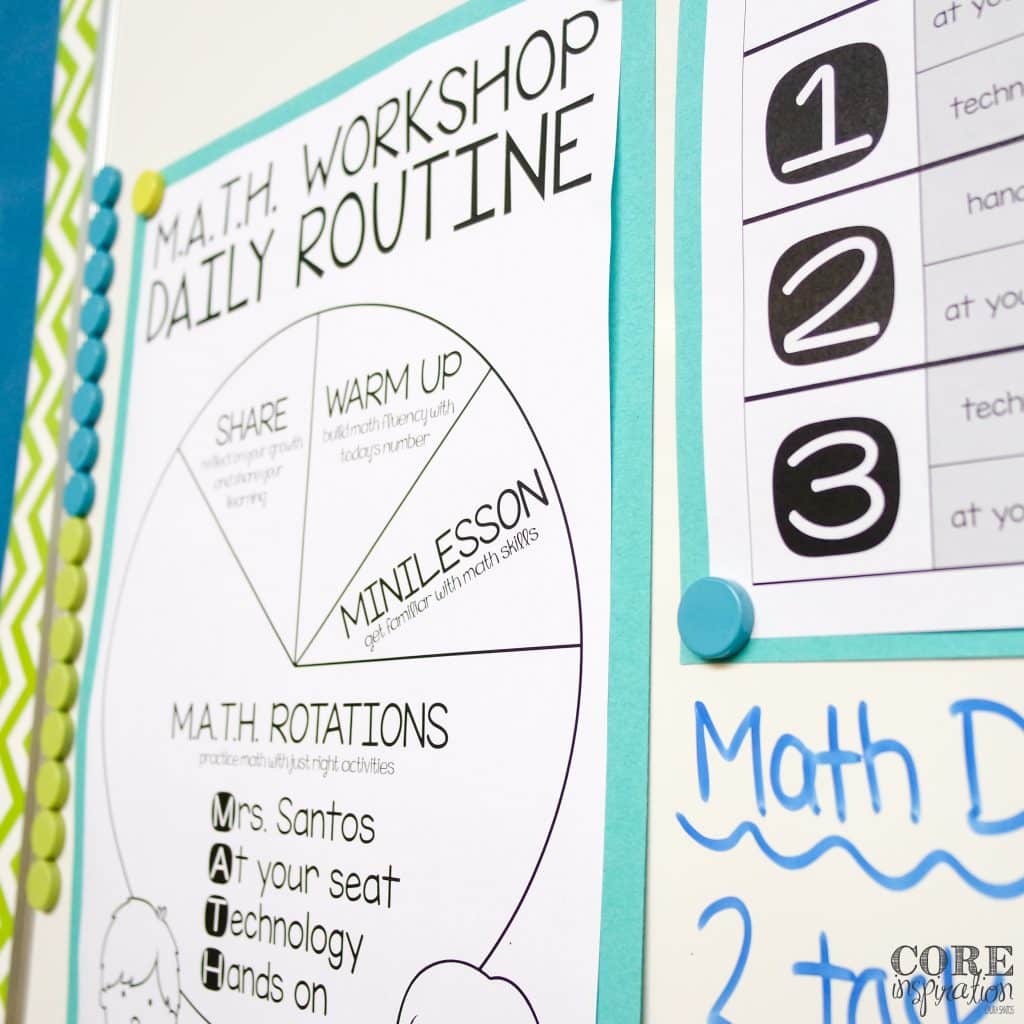 M.A.T.H. WORKSHOP
DAILY ROUTINE
SHARE
reflect on your growth
and share your
learning
WARM UP
build math fluency with
today's number
MINILESSON
get familiar with math skills
M.A.T.H. ROTATIONS
practice math with just right activities
Mrs. Santos
At your seat
Technology
Hands on
at yo
1
techn
hand
2
at you
tech
3
at yo
Math D
2
CORE
inspiration